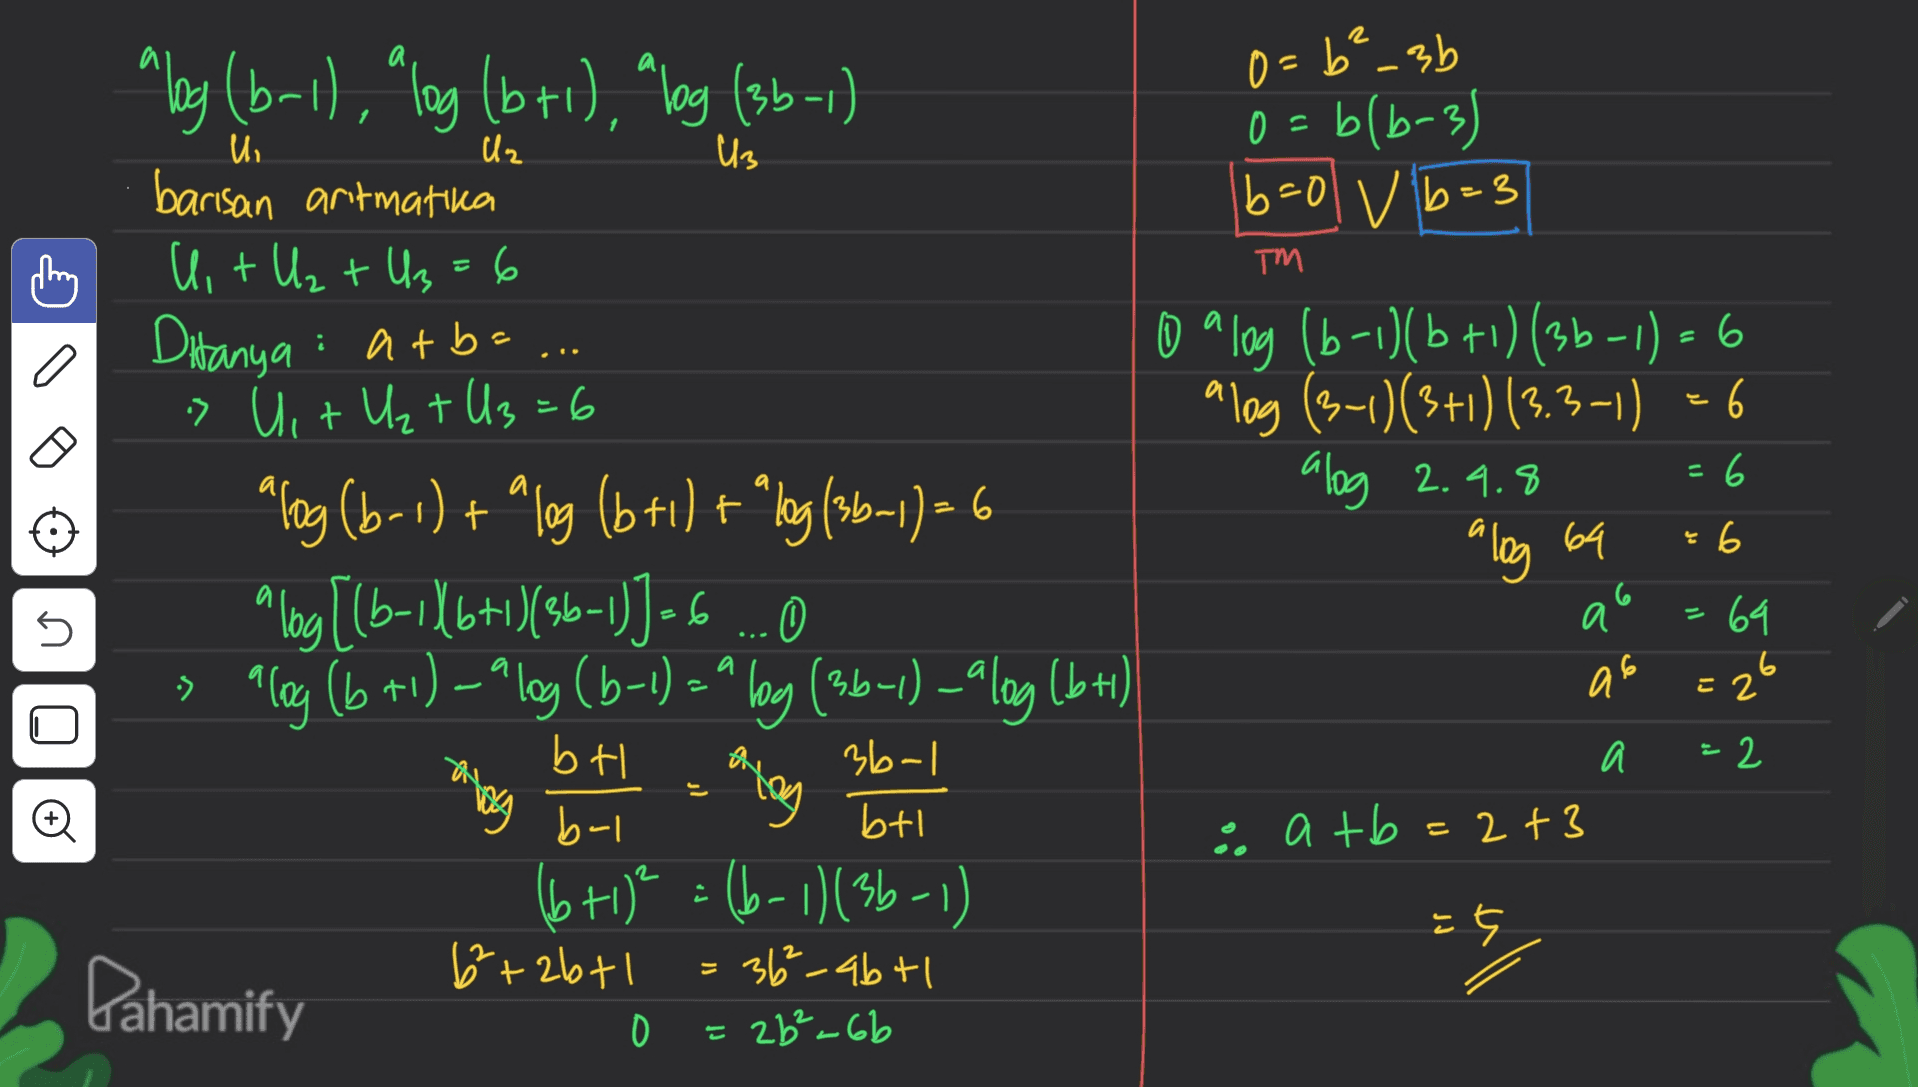 ᵃlog (b-1), ᵃlog (b+1), ᵃlog (3b-1)
U₁ U₂ U₃
barisan aritmatika
U₁ + U₂ + U₃ = 6
Ditanya : a + b = ...
∴> U₁ + U₂ + U₃ = 6
ᵃlog (b-1) + ᵃlog (b+1) + ᵃlog (3b-1) = 6
ᵃlog [(b-1)(b+1)(3b-1)] = 6 ... ①
∴> ᵃlog (b+1) - ᵃlog (b-1) = ᵃlog (3b-1) - ᵃlog (b+1)
ᵃlog (b+1)/(b-1) = ᵃlog (3b-1)/(b+1)
(b+1)² = (b-1)(3b-1)
b² + 2b + 1 = 3b² - 4b + 1
0 = 2b² - 6b
Pahamify
0 = b² - 3b
0 = b(b-3)
b=0 V b=3
TM
① ᵃlog (b-1)(b+1)(3b-1) = 6
ᵃlog (3-1)(3+1)(3.3-1) = 6
ᵃlog 2.4.8 = 6
ᵃlog 64 = 6
a⁶ = 64
a⁶ = 2⁶
a = 2
∴ a + b = 2 + 3
= 5